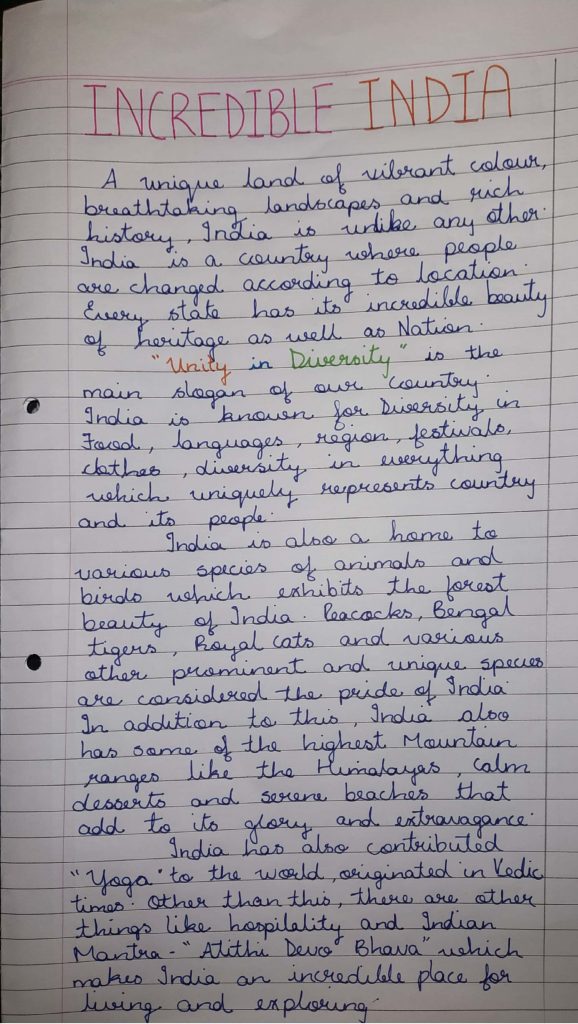 INCREDIBLE INDIA
A unique land of vibrant colour,
breathtaking landscapes and rich
history, India is unlike any other.
India is a country where people
are changed according to location.
Every state has its incredible beauty
of heritage as well as Nation.
"Unity in Diversity" is the
main slogan of our country.
India is known for Diversity in
Food, languages, region, festivals,
clothes, diversity in everything
which uniquely represents country
and its people.
India is also a home to
various species of animals and
birds which exhibits the forest
beauty of India. Peacocks, Bengal
tigers, Royal cats and various
other prominent and unique species
are considered the pride of India.
In addition to this, India also
has some of the highest Mountain
ranges like the Himalayas, calm
desserts and serene beaches that
add to its glory and extravagance.
India has also contributed
"Yoga" to the world, originated in Vedic
times. Other than this, there are other
things like hospitality and Indian
Mantra - "Atithi Devo Bhava" which
makes India an incredible place for
living and exploring.